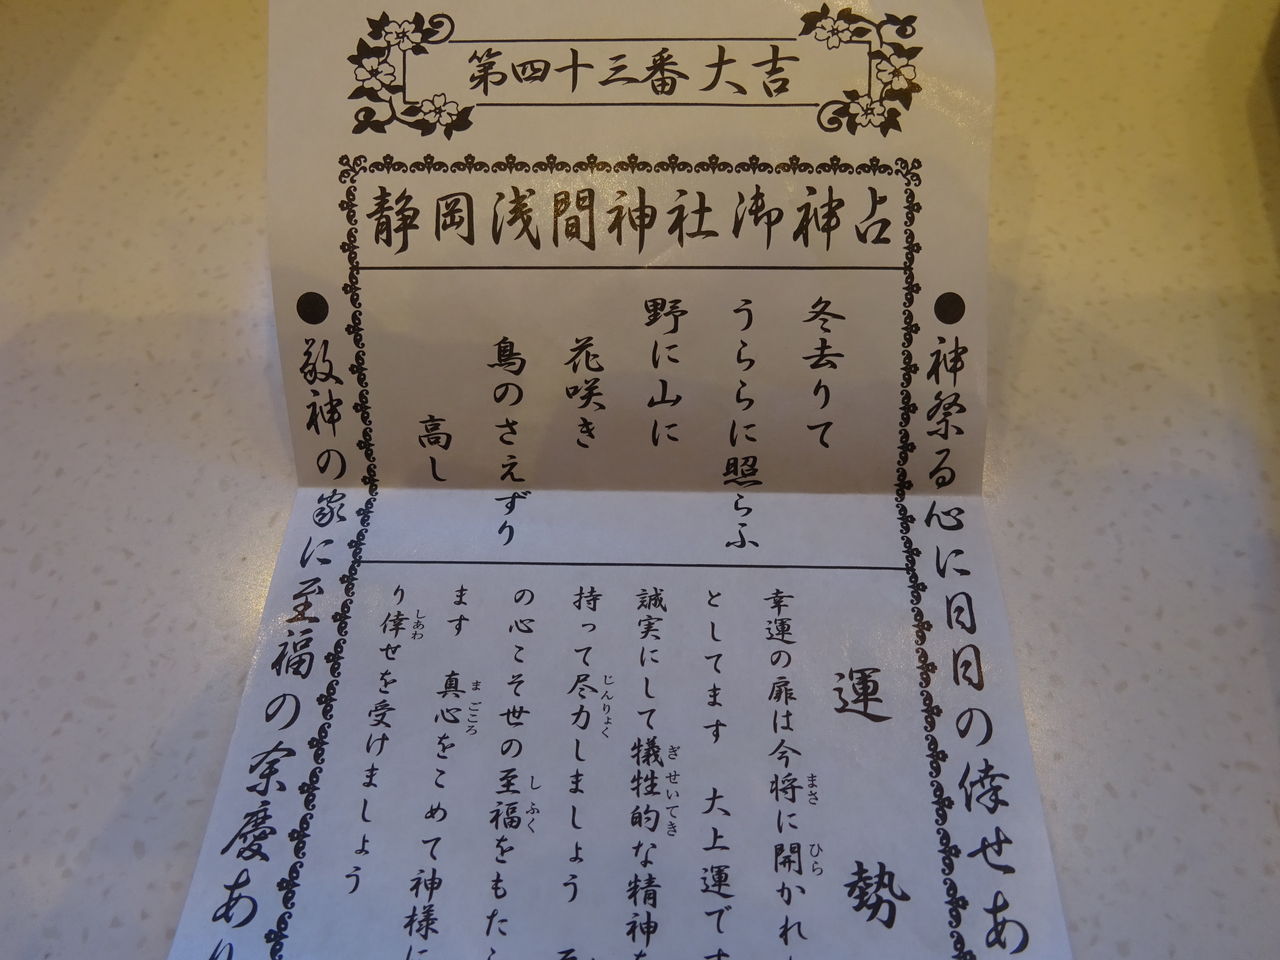 第四十三番 大吉
静岡浅間神社御神占
●神祭る心に日日の倖せあ
冬去りて
うららに照らふ
野に山に
花咲き
鳥のさえずり
高し
運勢
幸運の扉は今将に開かれ
としてます 大上運です
誠実にして犠牲的な精神を
持って尽力しましょう
の心こそ世の至福をもたら
ます 真心をこめて神様に
り倖せを受けましょう
●敬神の家に至福の余慶あり